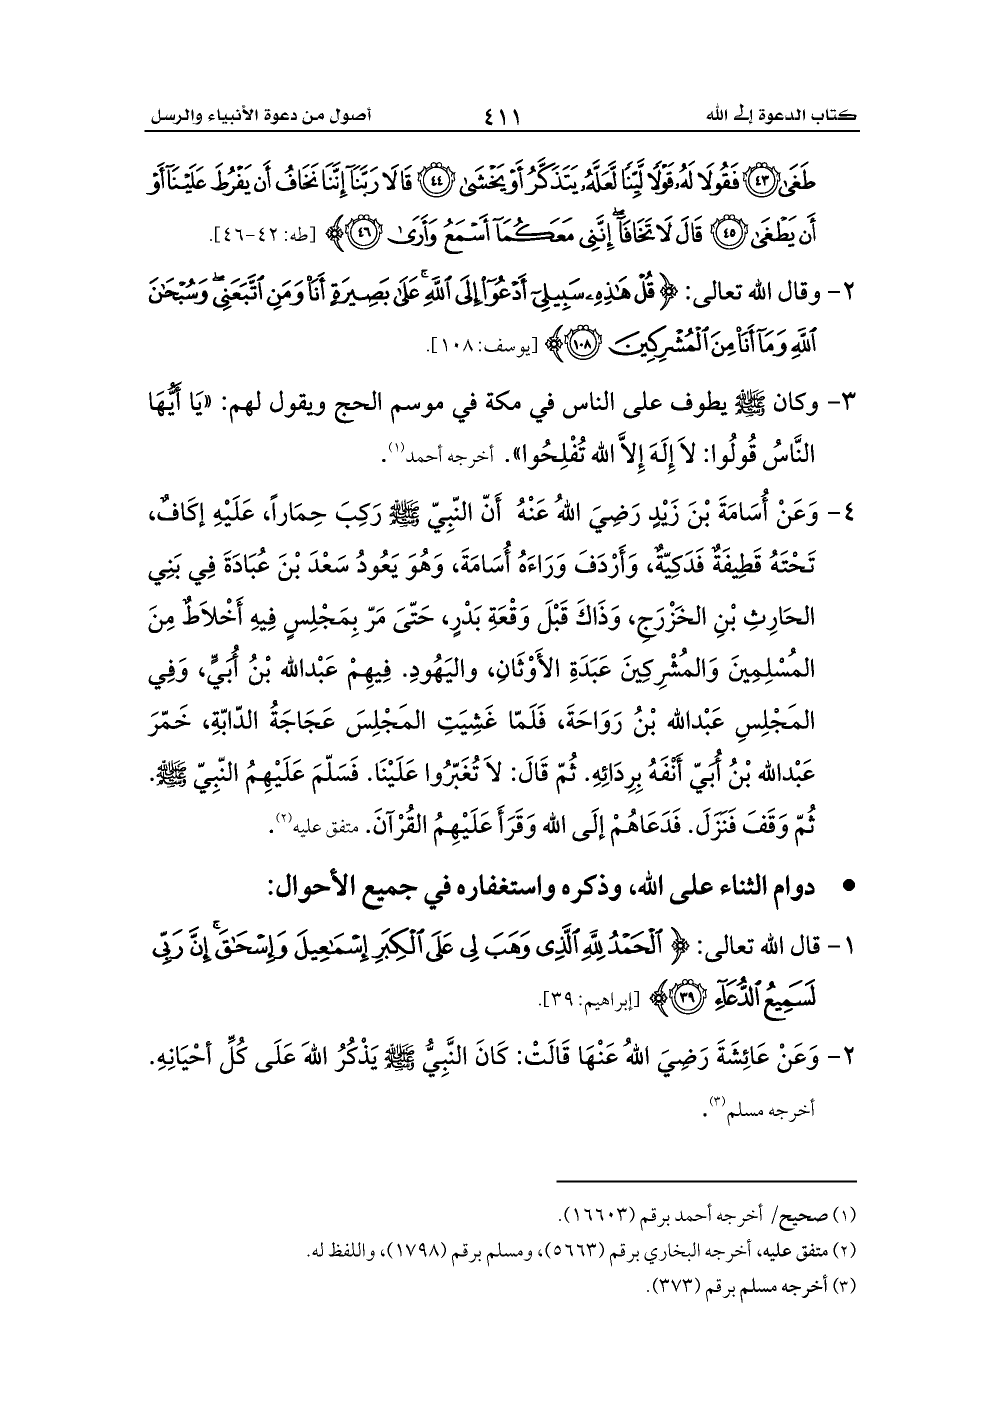 كتاب الدعوة إلى الله ٤١١ أصول من دعوة الأنبياء والرسل
طَغَىٰ ﴿٤٣﴾ فَقُولَا لَهُۥ قَوْلًا لَّيِّنًا لَّعَلَّهُۥ يَتَذَكَّرُ أَوْ يَخْشَىٰ ﴿٤٤﴾ قَالَا رَبَّنَآ إِنَّنَا نَخَافُ أَن يَفْرُطَ عَلَيْنَآ أَوْ
أَن يَطْغَىٰ ﴿٤٥﴾ قَالَ لَا تَخَافَآ ۖ إِنَّنِى مَعَكُمَآ أَسْمَعُ وَأَرَىٰ ﴿٤٦﴾ ﴾ [طه: ٤٢-٤٦].
٢- وقال الله تعالى: ﴿ قُلْ هَٰذِهِۦ سَبِيلِىٓ أَدْعُوٓا۟ إِلَى ٱللَّهِ ۚ عَلَىٰ بَصِيرَةٍ أَنَا۠ وَمَنِ ٱتَّبَعَنِى ۖ وَسُبْحَٰنَ
ٱللَّهِ وَمَآ أَنَا۠ مِنَ ٱلْمُشْرِكِينَ ﴿١٠٨﴾ ﴾ [يوسف: ١٠٨].
٣- وكان ﷺ يطوف على الناس في مكة في موسم الحج ويقول لهم: «يَا أَيُّهَا
النَّاسُ قُولُوا: لاَ إِلَهَ إِلاَّ الله تُفْلِحُوا». أخرجه أحمد(١).
٤- وَعَنْ أُسَامَةَ بْنَ زَيْدٍ رَضِيَ اللهُ عَنْهُ أَنّ النّبِيّ ﷺ رَكِبَ حِمَاراً، عَلَيْهِ إكَافٌ،
تَحْتَهُ قَطِيفَةٌ فَدَكِيّةٌ، وَأَرْدَفَ وَرَاءَهُ أُسَامَةَ، وَهُوَ يَعُودُ سَعْدَ بْنَ عُبَادَةَ فِي بَنِي
الحَارِثِ بْنِ الخَزْرَجِ، وَذَاكَ قَبْلَ وَقْعَةِ بَدْرٍ، حَتّىَ مَرّ بِمَجْلِسٍ فِيهِ أَخْلاَطٌ مِنَ
المُسْلِمِينَ وَالمُشْرِكِينَ عَبَدَةِ الأَوْثَانِ، واليَهُودِ. فِيهِمْ عَبْدالله بْنُ أُبَيّ، وَفِي
المَجْلِسِ عَبْدالله بْنُ رَوَاحَةَ، فَلَمّا غَشِيَتِ المَجْلِسَ عَجَاجَةُ الدّابّةِ، خَمّرَ
عَبْدالله بْنُ أُبَيّ أَنْفَهُ بِرِدَائِهِ. ثُمّ قَالَ: لاَ تُغَبّرُوا عَلَيْنَا. فَسَلّمَ عَلَيْهِمُ النّبِيّ ﷺ.
ثُمّ وَقَفَ فَنَزَلَ. فَدَعَاهُمْ إلَى الله وَقَرَأَ عَلَيْهِمُ القُرْآنَ. متفق عليه(٢).
• دوام الثناء على الله، وذكره واستغفاره في جميع الأحوال:
١- قال الله تعالى: ﴿ ٱلْحَمْدُ لِلَّهِ ٱلَّذِى وَهَبَ لِى عَلَى ٱلْكِبَرِ إِسْمَٰعِيلَ وَإِسْحَٰقَ ۚ إِنَّ رَبِّى
لَسَمِيعُ ٱلدُّعَآءِ ﴿٣٩﴾ ﴾ [إبراهيم: ٣٩].
٢- وَعَنْ عَائِشَةَ رَضِيَ اللهُ عَنْهَا قَالَتْ: كَانَ النَّبِيُّ ﷺ يَذْكُرُ اللهَ عَلَى كُلِّ أحْيَانِهِ.
أخرجه مسلم(٣).
(١) صحيح/ أخرجه أحمد برقم (١٦٦٠٣).
(٢) متفق عليه، أخرجه البخاري برقم (٥٦٦٣)، ومسلم برقم (١٧٩٨)، واللفظ له.
(٣) أخرجه مسلم برقم (٣٧٣).